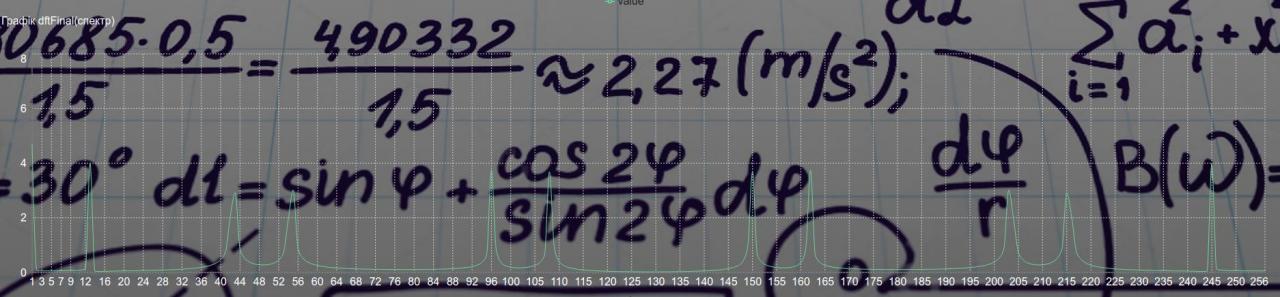 value
Графік dftFinal(спектр)
0685·0,5 = 490332 ≈ 2,27 (m/s²);
1,5 1,5
Σ a²ᵢ + x
i=1
=30° dt = sin φ + cos 2φ dφ
sin 2φ
dφ
r
B(W)=
8
6
4
2
0
1 3 5 7 9 12 16 20 24 28 32 36 40 44 48 52 56 60 64 68 72 76 80 84 88 92 96 100 105 110 115 120 125 130 135 140 145 150 155 160 165 170 175 180 185 190 195 200 205 210 215 220 225 230 235 240 245 250 256